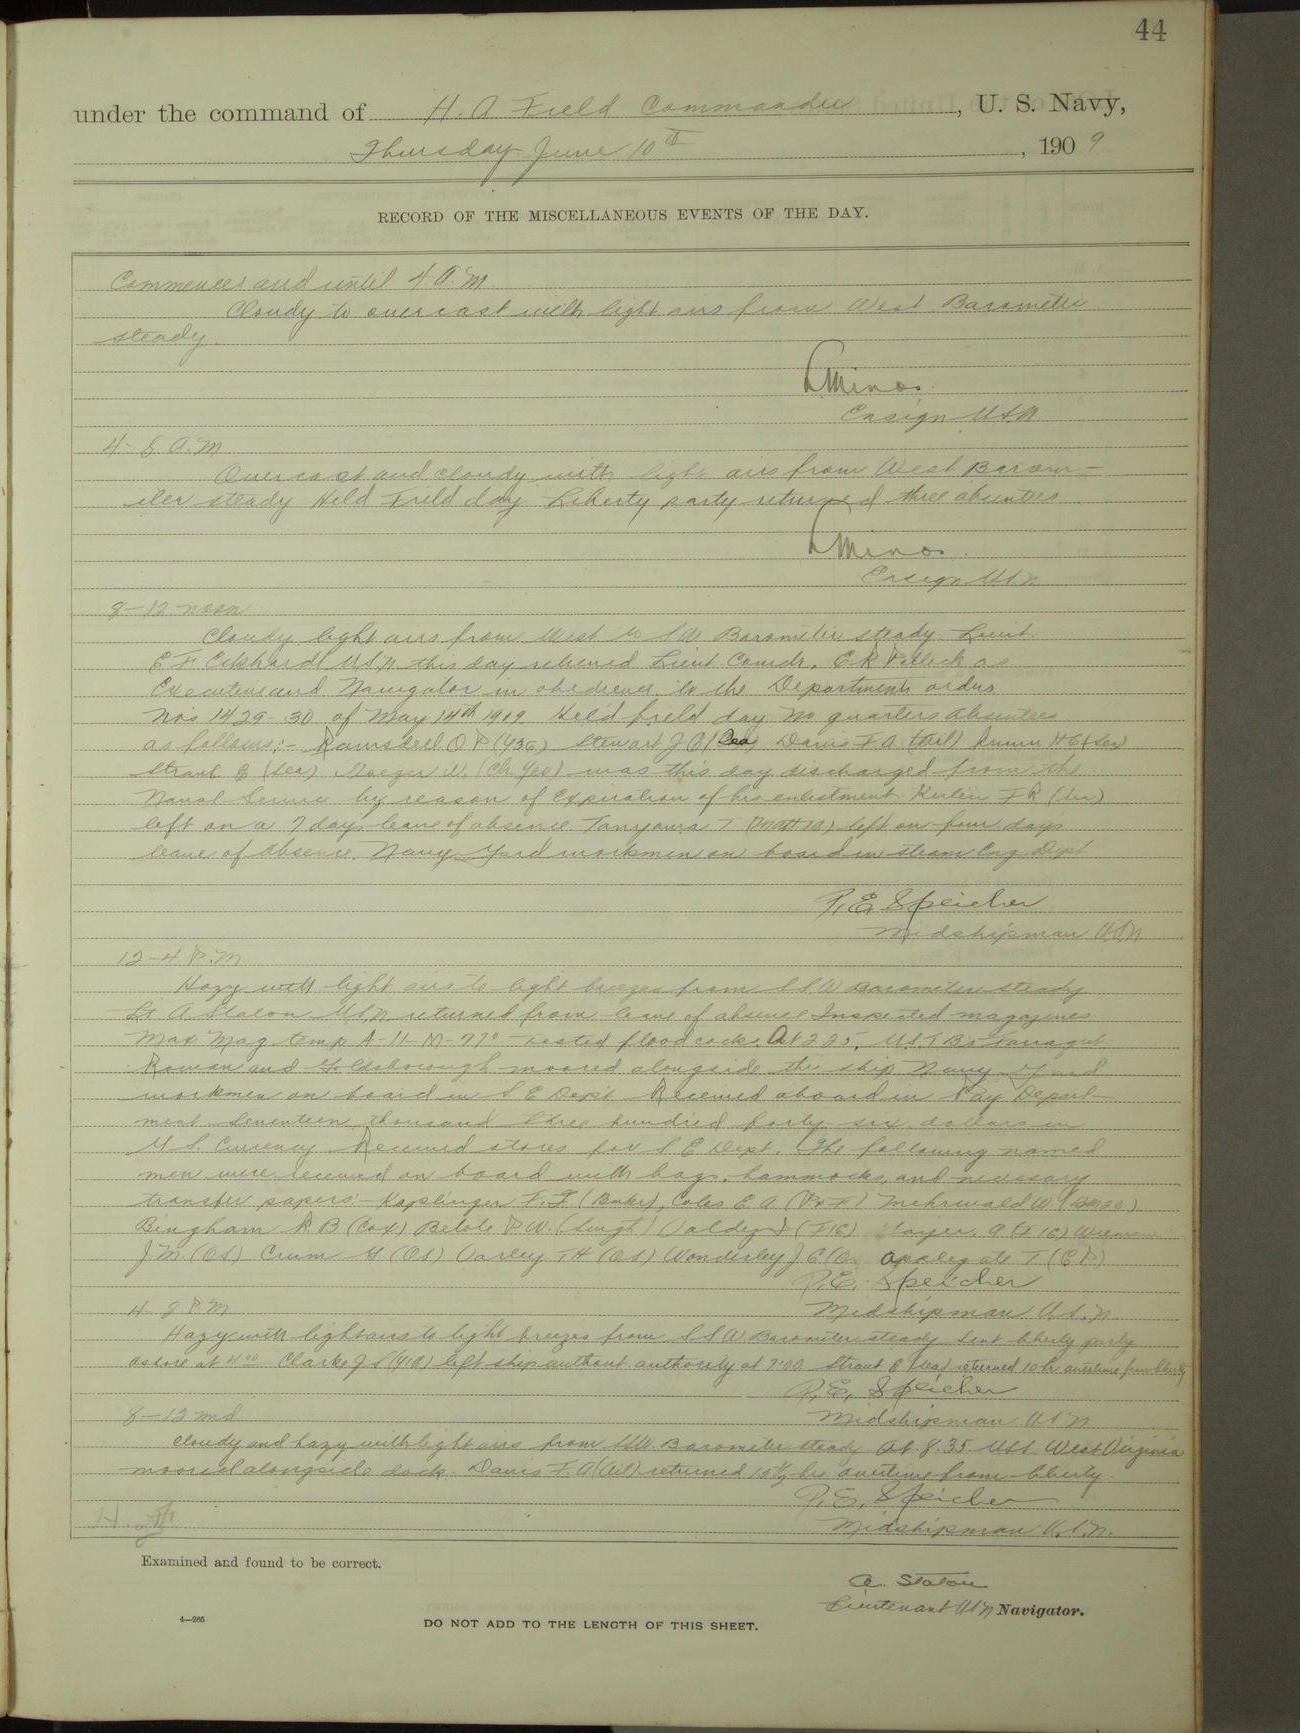 44
under the command of H. A Field Commander, U. S. Navy,
Thursday June 10th, 1909
RECORD OF THE MISCELLANEOUS EVENTS OF THE DAY.
Commences and until 4 A.M.
Cloudy to overcast with light airs from West Barometer
steady.
Minor
Ensign U.S.N
4-8 A.M
Overcast and cloudy with light airs from West Barom-
eter steady Held Field day Liberty party returned three absentees
Minor
Ensign U.S.N
8-12 noon
Cloudy light airs from West to SW Barometer steady Lieut
E F Eckhardt U.S.N this day relieved Lieut Comdr. E R Pollock as
Executive and Navigator in obedience to the Departments orders
No's 1429-30 of May 14th 1909 Held field day No quarters Absentees
as follows:- Ramsdell O P Stewart J C (Sea) Davis F A H C (Sea)
Straut E (Sea) (Ch Yeo) was this day discharged from the
Naval Service by reason of Expiration of his enlistment F R (Sea)
left on a 7 days leave of absence. Tanyama T (Matt 1c) left on four days
leave of absence. Navy Yard workmen on board in Steam Eng Dept
P. E. Speicher
Midshipman U.S.N
12-4 P.M
Hazy with light airs to light breezes from SSW Barometer steady
Lt A Staton U.S.N returned from leave of absence Inspected magazines
Max Mag temp A-11-M-97° tested flood cocks. At 2 25, U.S.T.B's Farragut
Rowan and Goldsborough moored alongside the ship Navy Yard
workmen on board in S E Dept Received aboard in Pay Depart-
ment Seventeen thousand three hundred forty six dollars in
U S. Currency Received stores for S E Dept. The following named
men were received on board with bags, hammocks, and necessary
transfer papers:- Kaplinger F. F (Baker), Coles E A Mehrwald W
Bingham R B (Cox) Belote P W. (Sung)
J M (OS) Crum G (OS) Varley T H (OS) Wonderley J E Applegate T (C P)
P. E. Speicher
Midshipman U.S.N.
4-8 P.M
Hazy with light airs to light breezes from SSW Barometer steady Sent liberty party
ashore at 4 00 Clarke J S left ship without authority at 7:00 Straut E (sea) returned 10 hr overtime from liberty
P. E. Speicher
Midshipman U.S.N
8-12 md
Cloudy and hazy with light airs from SSW. Barometer steady At 8.35 U.S.S. West Virginia
moored alongside dock. Davis F. A returned 15½ hrs overtime from liberty.
P. E. Speicher
Midshipman U.S.N.
Examined and found to be correct.
A. Staton
Lieutenant U.S.N Navigator.
4—265
DO NOT ADD TO THE LENGTH OF THIS SHEET.